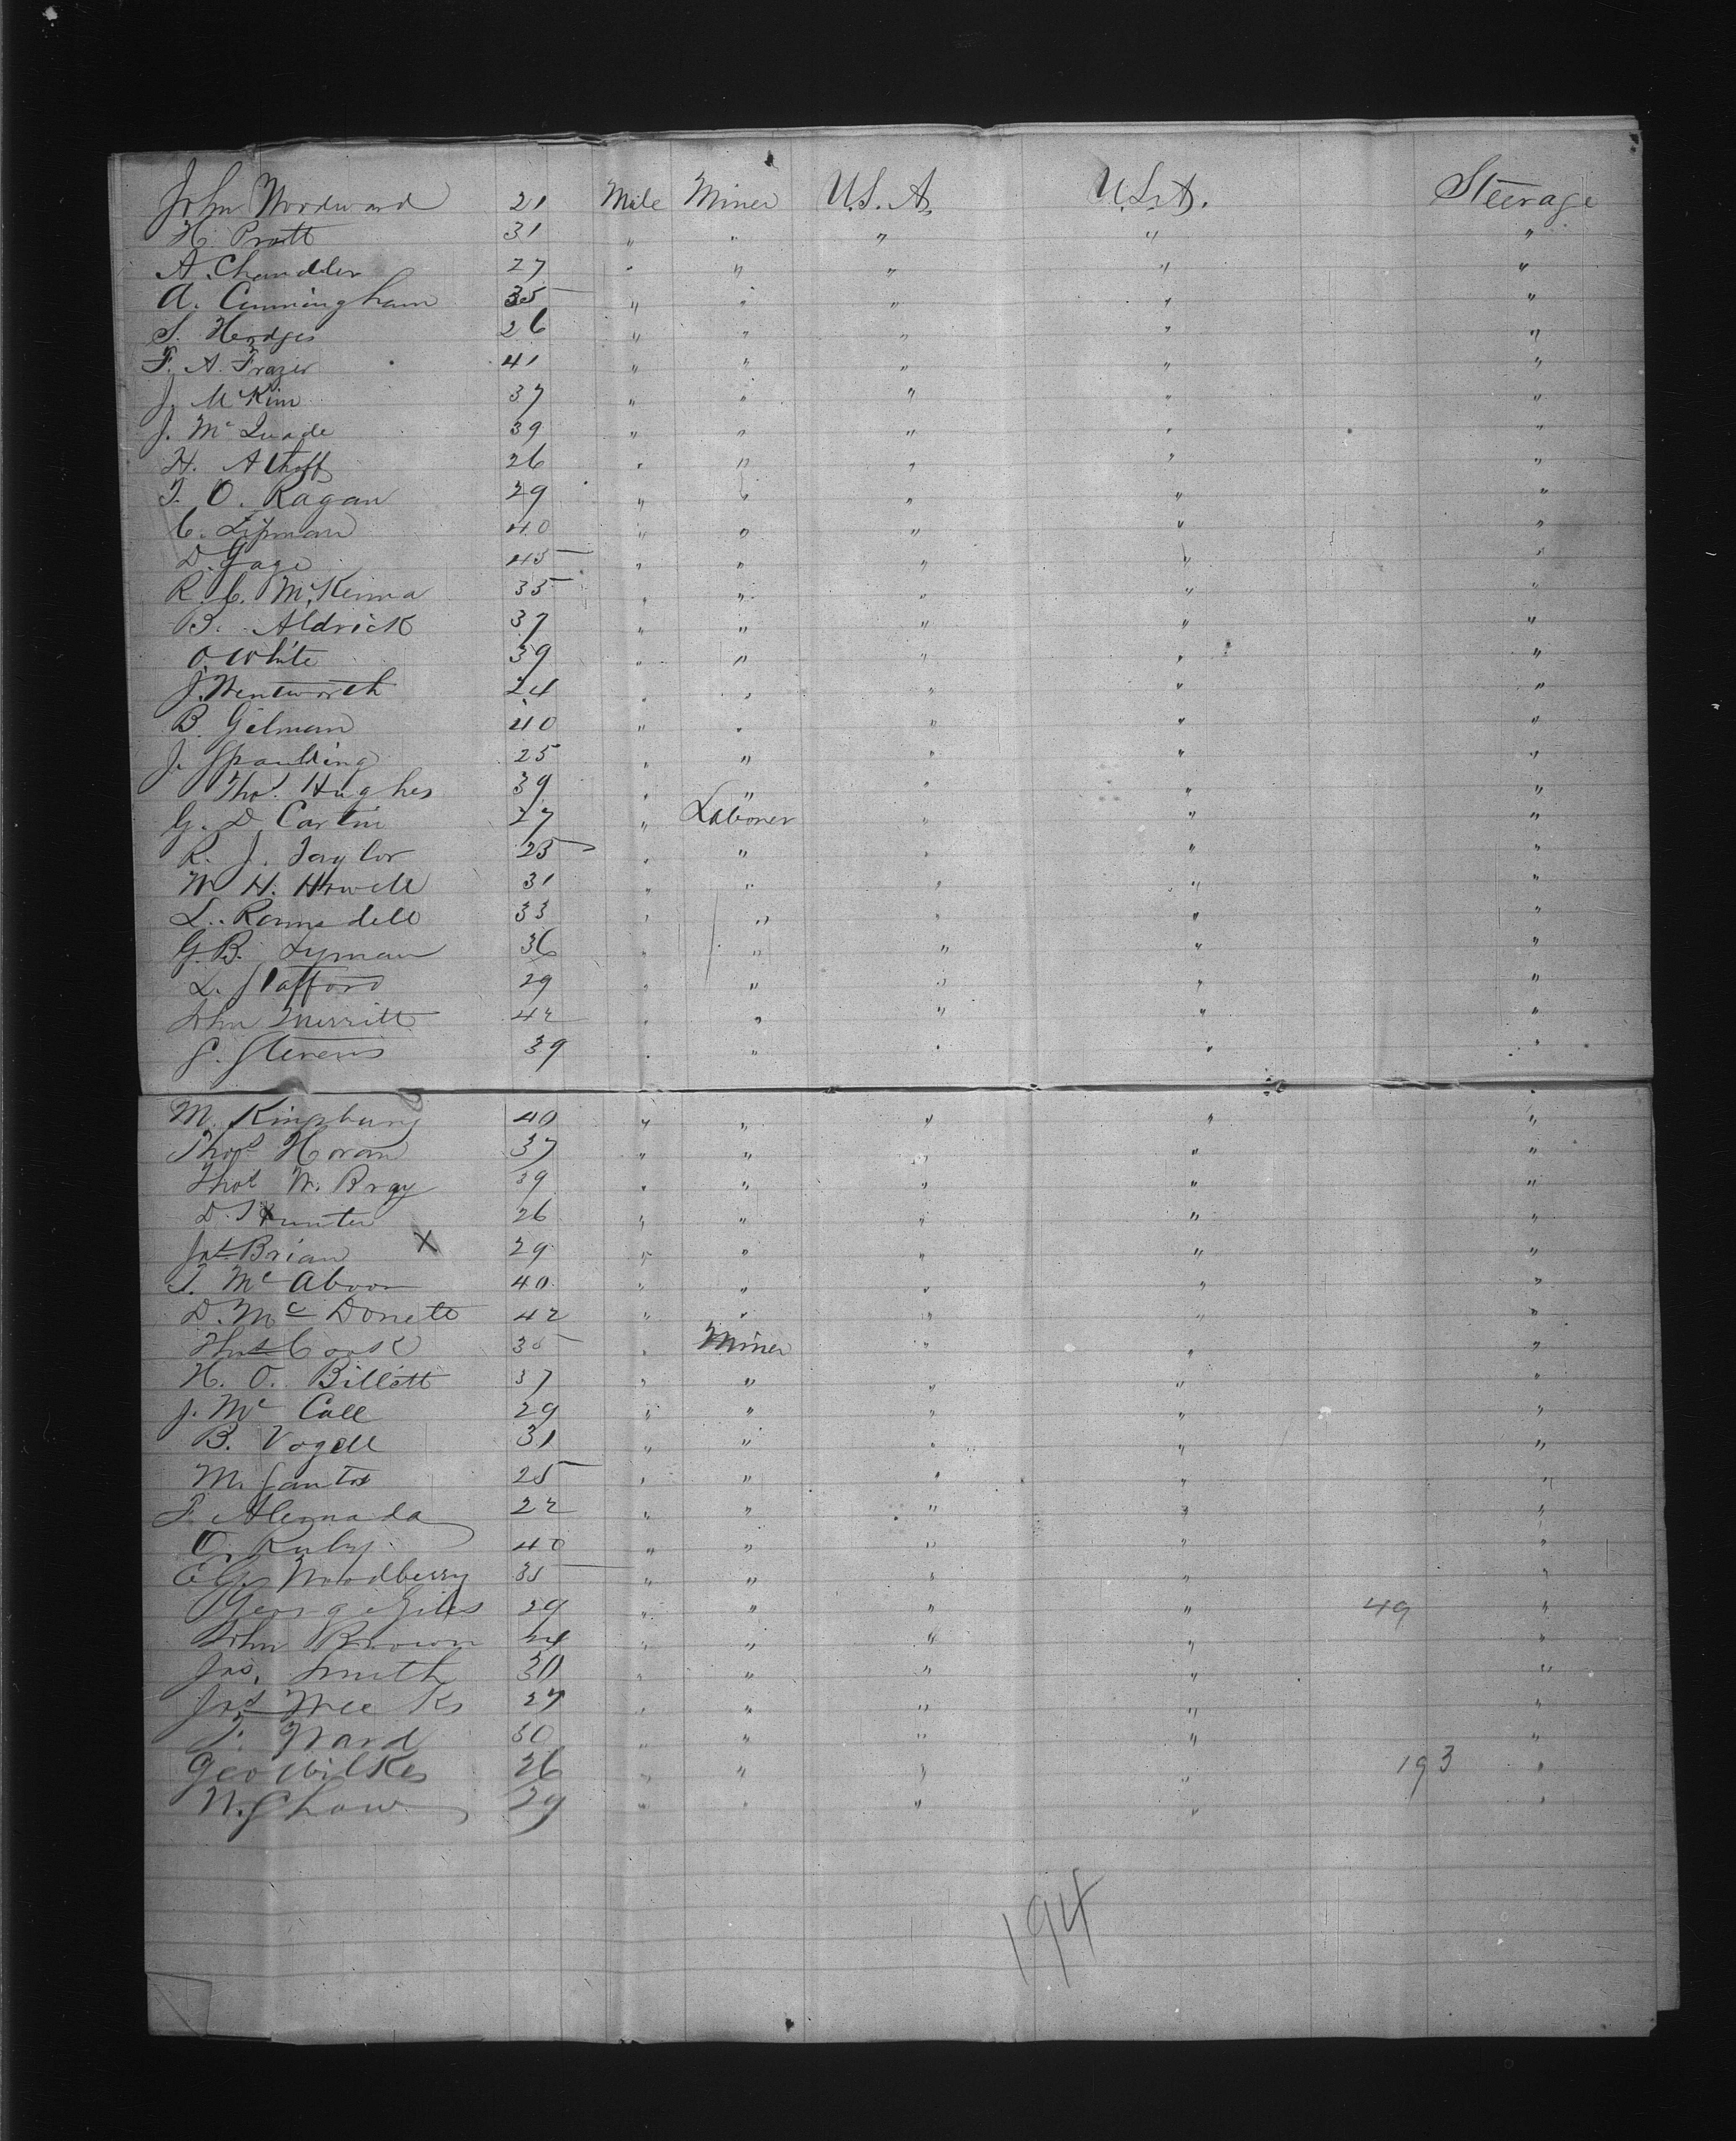 John Woodward 21 Male Miner U.S.A. U.S.A. Steerage
H. Pratt 31 " " " " "
A. Chandler 27 " " " " "
A. Cunningham 35 " " " " "
S. Hedges 26 " " " " "
F. A. Frazer 41 " " " " "
J. McKim 37 " " " " "
J. Mc Quade 39 " " " " "
H. Althoff 26 " " " " "
T. O. Ragan 29 " " " " "
C. Lipman 40 " " " " "
D. Gage 45 " " " " "
R. C. McKenna 35 " " " " "
B. Aldrick 37 " " " " "
O. White 39 " " " " "
J. Wentworth 24 " " " " "
B. Gilman 40 " " " " "
J. Spaulding 25 " " " " "
Thos. Hughes 39 " " " " "
G. D. Cartin 27 " Laborer " " "
R. J. Taylor 25 " " " " "
W H. Howell 31 " " " " "
L. Ramsdell 33 " " " " "
G. B. Lyman 36 " " " " "
L. Stafford 29 " " " " "
John Merritt 42 " " " " "
S. Stevens 39 " " " " "
M. Kingsbury 40 " " " " "
Thos Horan 37 " " " " "
Thos W. Bray 39 " " " " "
D. Hunter 26 " " " " "
Jas Brian X 29 " " " " "
T. Mc Aboon 40 " " " " "
D. Mc Donett 42 " " " " "
Thos Cook 35 " Miner " " "
H. O. Billett 37 " " " " "
J. Mc Call 29 " " " " "
B. Vogell 31 " " " " "
M. Santos 25 " " " " "
F. Alemada 22 " " " " "
O. Ruby 40 " " " " "
E G. Woodberry 35 " " " " "
George Giles 29 " " " " 49 "
John Brown 24 " " " " "
Jas. Smith 30 " " " " "
Jas Meeks 27 " " " " "
T. Ward 30 " " " " "
Geo Wilkes 26 " " " " 193 "
N. Shaw 29 " " " " "
194